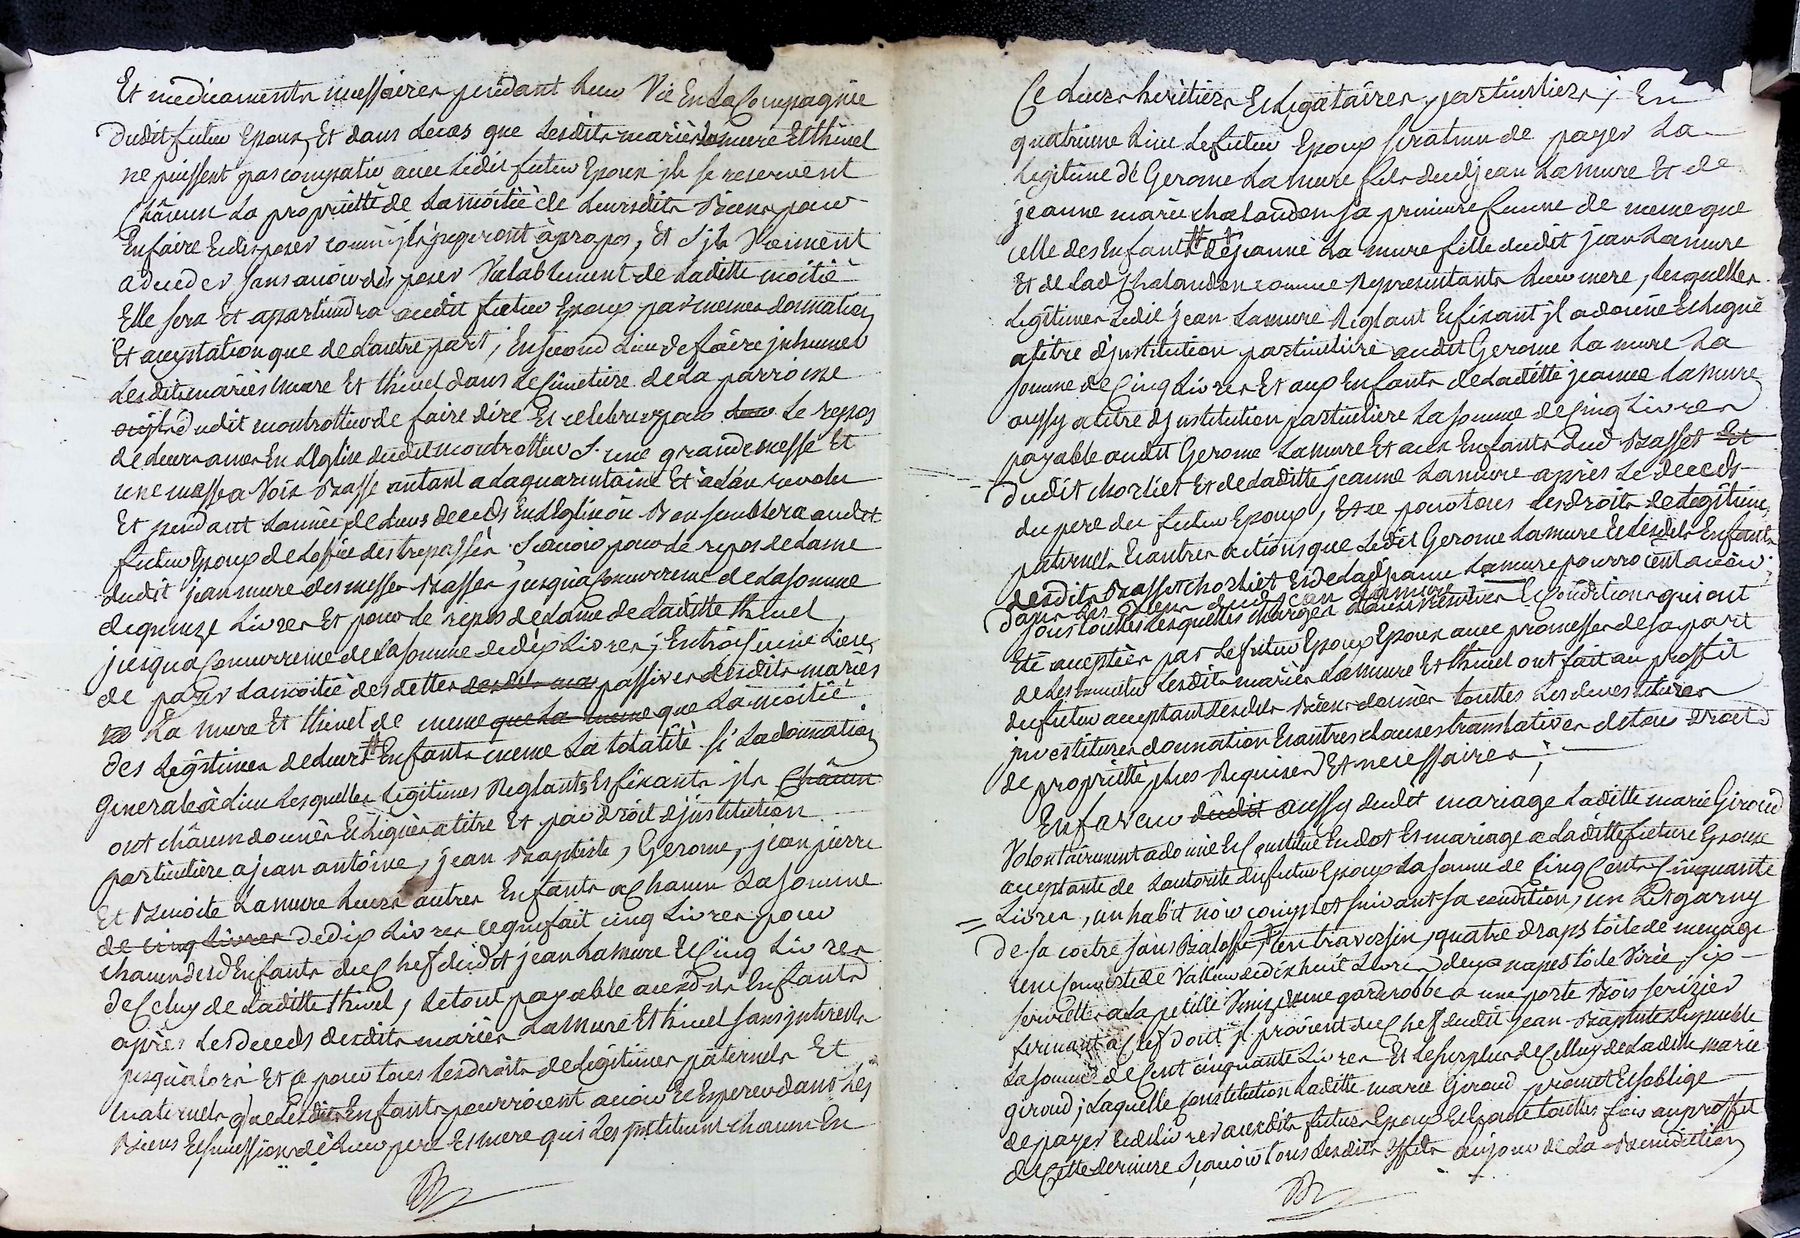 Et medicaments necessaires pendant leur Vie En La Compagnie
Dudit futur Epoux, Et dans le cas que Lesdits mariés Lamure Et thivel
ne puissent pas compatir avec Ledit futur Epoux jls se reservent
Châcun La proprietté de La moitiè de Leursdits Biens pour
En faire Et disposer comm'jls jugeront àpropos, Et s'jls Vienent
a deceder sans avoir disposer Valablement de Ladette moitiè
Elle sera Et apartiendra audit futur Epoux par mesmes donnation
Et aceptation que de L'autre part; En second Lieu de faire jnhumer
Lesdits mariés Mure Et thivel dans Le Cimetiere de La parroisse
dudit montrottier de faire dire Et celebrer pour leur Le repos
de Leurs ames En L'Eglise dudit montrottier S. une grande messe Et
une messe a Voix Basse autant a La quarentaine Et à L'an revolu
Et pendant L'année de Leurs deceds En L'Eglise où Bon semblera audit
futur Epoux de L'office des trepassés, Scavoir pour Le repos de L'ame
dudit jean mure des messes Basses jusqu'a Concurrence de La somme
de quinze Livres Et pour Le repos de L'ame de Ladette thivel
jusqua Concurrence de La somme de dix Livres; En troisieme Lieu
de payer La moitié des dettes desdits ma passives desdits mariés
La Mure Et thivel de meme que La meme que La moitié
des Legitimes de Leurs # Enfants meme La totalité si La donnation
generale à Lieu Lesquelles Legitimes Reglants Et fixants jls Châcun
ont châcun donnés Et Leguès a titre Et par droit d'jnstitution
particuliere a jean antoine, jean Baptiste, Gerome, jean pierre
Et Benoite Lamure Leurs autres Enfants a Chacun La somme
de Cinq Livres de dix Livres ce qui fait cinq Livres pour
chacun desd. Enfants du Chef dudit jean Lamure Et Cinq Livres
de Celuy de Ladette thivel, Le tout payable auxd. Enfants
après Les deceds desdits mariés Lamure Et thivel sans jnterets
jusqu'alors Et ce pour tous Les droits de Legitimes paternels Et
maternels que Lesdits Enfants pourroient avoir Et Esperer dans Les
Biens Et succession de Leur pere Et mere qui Les jnstituent chacun En
Ce Leurs heritiers Et Legataires particuliers; En
quatrieme Lieu Le futur Epoux sera tenu de payer La
Legitime de Gerome Lamure fils dud. jean Lamure Et de
jeanne marie chalandon sa premiere femme de meme que
celle des Enfants # de jeanne La mure fille dudit jean Lamure
Et de Lad. Chalandon comme Representants Leur mere, Lesquelles
Legitimes Ledit jean Lamure Reglant Et fixant jl a donné Et Legué
a titre d'jnstitution particuliere audit Gerome La mure La
somme de Cinq Livres Et aux Enfants de Ladette jeanne Lamure
aussy a titre d'jnstitution particuliere La somme de Cinq Livres
payable audit Gerome Lamure Et aux Enfants dud. Basset Et
Dudit chorliet Et de Laditte jeanne Lamure après Le deceds
du pere du futur Epoux, Et ce pour tous Les droits de Legitime
paternels Et autres actions que Ledit Gerome Lamure Et Lesdits Enfants
desdits Basset chorliet Et de Lad. jeanne Lamure pourroient avoir
Dans Les Biens dud. jean Lamure
sous toutes Lesquelles charges Et Conditions qui ont
Eté acceptées par Le futur Epoux avec promesses de sa part
de Les Lesdits mariés Lamure Et thivel ont fait au proffit
du futur acceptant Desdits Biens donnés touttes Les devestitures
jnvestitures donnation Et autres clauses translatives de tous Droits
de proprietté plus Requises Et necessaires;
En faveur dudit aussy dudit mariage Laditte marie Giroud
Volontairement a donné Et Constitué En dot Et mariage a Laditte future Epouse
acceptante de L'autorité du futur Epoux La somme de Cinq Cents Cinquante
Livres, un habit noir complet suivant sa condition, un Lit garny
De sa coetre sans Baloffe, # un traversin, quatre draps toile de menage
une Couverte de Valleur de dix huit Livres deux napes toile Virée six
serviettes a La petitte Venise, une garderobbe a une porte Bois serizier
fermant à Clef dont jl provient du Chef dudit jean Baptiste
La somme de Cent cinquante Livres Et Le surplus de Celluy de Laditte marie
giroud; Laquelle Constitution Laditte marie Giroud promet Et soblige
de payer Et delivrer auxdits futurs Epoux Et Epouse touttes fois au proffit
de Cette derniere Scavoir tous Lesdits Effets au jour de La Benediction